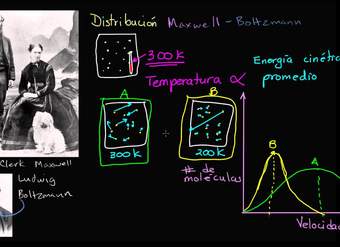 Distribución Maxwell - Boltzmann
300 K
Temperatura ∝ Energía cinética
promedio
A
B
300 K
200 K
# de
moléculas
B
A
Velocidad
Clerk Maxwell
Ludwig
Boltzmann